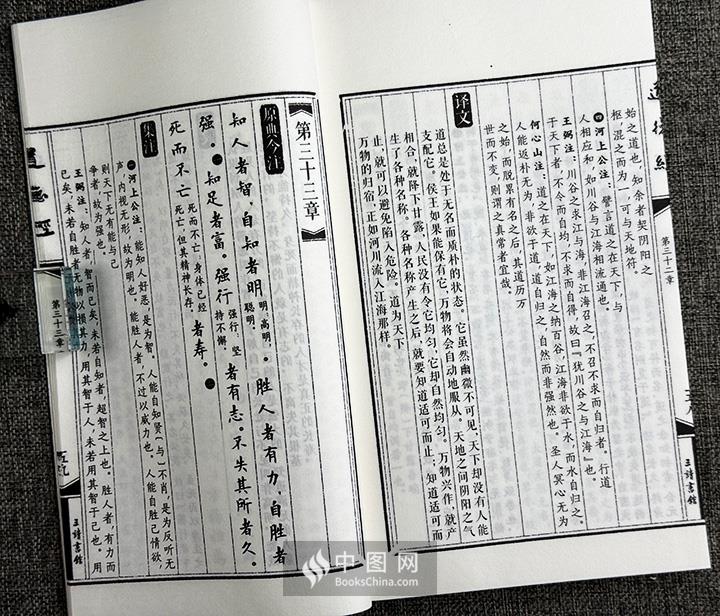 道德经
第三十二章
始之道也,知余者契阴阳之
枢混之而为一,可与天地符。
四 河上公注:譬言道之在天下,与
人相应和,如川谷与江海相流通也。
王弼注:川谷之求江与海,非江海召之,不召不求而自归者。行道
于天下者,不令而自均,不求而自得,故曰『犹川谷之与江海』也。
何心山注:道之在天下,如江海之纳百谷,江海非欲于水,而水自归之。
人能返朴无为,非欲于道,道自归之,自然而非强然也。圣人冥心无为
之始,而脱累有名之后,其道历万
世而不变,则谓之真常者宜哉。
译文
道总是处于无名而质朴的状态。它虽然幽微不可见,天下却没有人能
支配它。侯王如果能保有它,万物将会自动地服从。天地之间阴阳之气
相合,就降下甘露,人民没有令它均匀,它却自然均匀。万物兴作,就产
生了各种名称。各种名称产生之后,就要知道适可而止;知道适可而
止,就可以避免陷入危险。道为天下
万物的归宿,正如河川流入江海那样。
三诗书馆
第三十三章
原典今注
知人者智,自知者明明:高明,聪明。。胜人者有力,自胜者
强。一知足者富。强行强行:坚持不懈。者有志。不失其所者久。
死而不亡死而不亡:身体已经死亡,但其精神长存。者寿。二
集注
一 河上公注:能知人好恶,是为智。人能自知贤(与)不肖,是为反听无
声,内视无形,故为明也。能胜人者,不过以威力也。人能自胜己情欲,
则天下无有能与己
争者,故为强也。
王弼注:知人者,智而已矣,未若自知者,超智之上也。胜人者,有力而
已矣,未若自胜者无物以损其力。用其智于人,未若用其智于己也。用
道德经
第三十三章
五九
三诗书馆
中图网
BooksChina.com